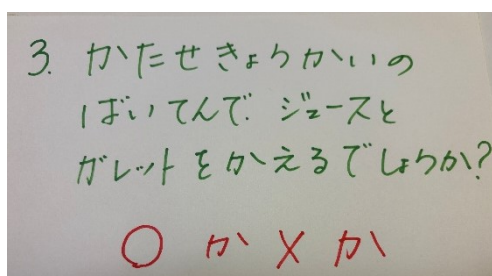 3. かたせきょうかいの
ばいてんで ジュースと
ガレットをかえるでしょうか?
○ か × か